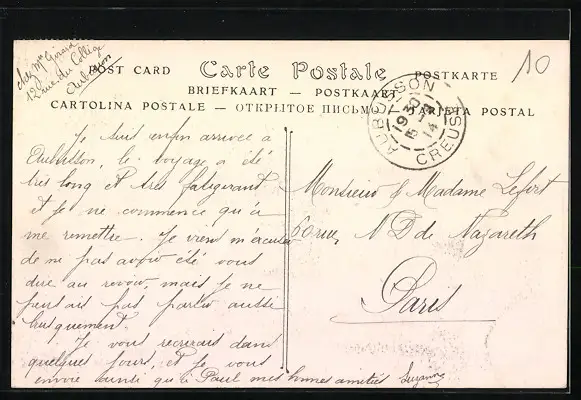 chez Mme Girard
12 rue du Collège
Aubusson
POST CARD Carte Postale POSTKARTE
BRIEFKAART — POSTKAART
CARTOLINA POSTALE — ОТКРЫТОЕ ПИСЬМО — TARJETA POSTAL
10
AUBUSSON
CREUSE
14
Je suis enfin arrivée à
Aubusson, le voyage a été
très long et très fatiguant
et je ne commence qu'à
me remettre. Je viens m'excuser
de ne pas avoir été vous
dire au revoir, mais je ne
pensais pas partir aussi
brusquement.
Je vous récrirais dans
quelques jours, et je vous
envoie ainsi qu'à Paul mes bonnes amitiés Suzanne
Monsieur & Madame Lefort
60 rue, N D de Nazareth
Paris